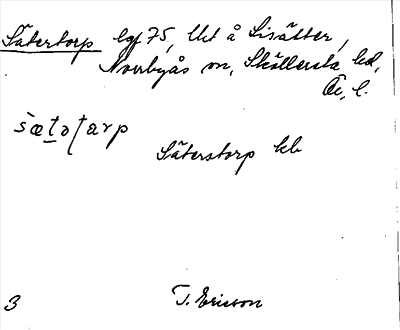 Sätertorp lgf 75, Utt å Lisätter,
Norrbyås sn, Sköllersta hd,
Ör. l.
sæ̀tətarp
Säterstorp kb
3 T. Ericson